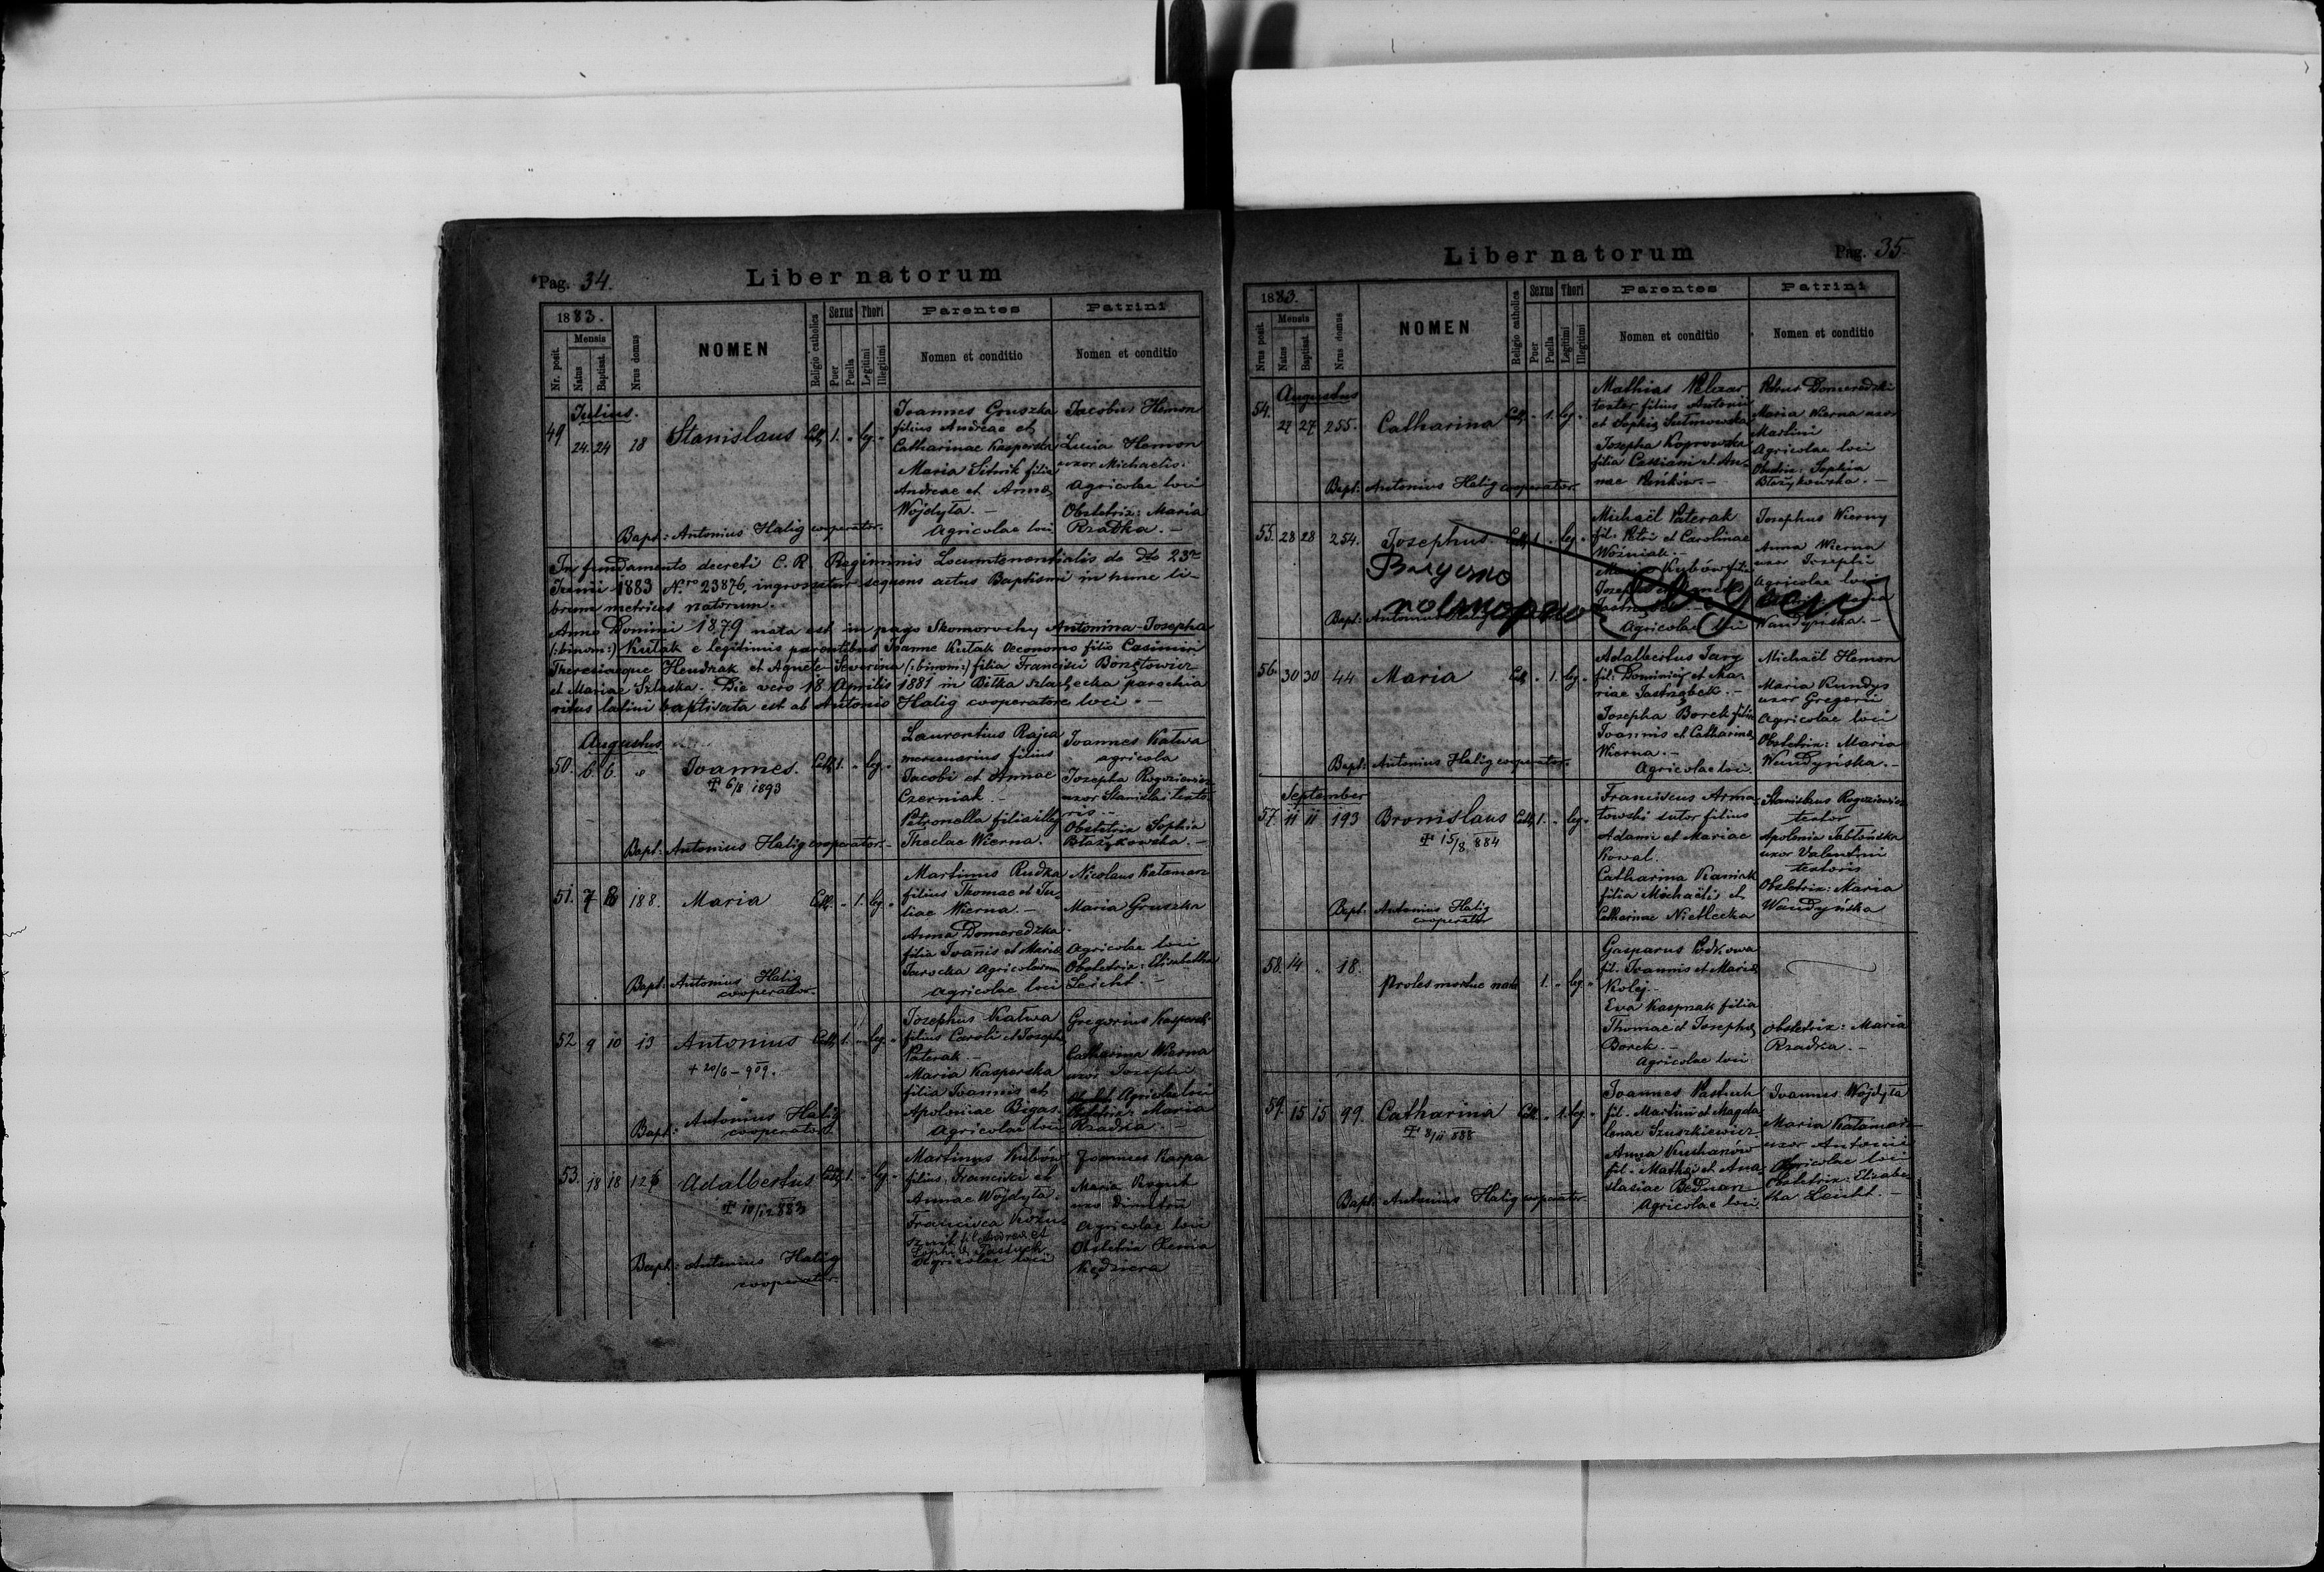 Pag. 34.
Liber natorum
1883.
Nr. posit.
Mensis
Natus
Baptisat.
Nrus domus
NOMEN
Religio catholica
Sexus
Puer
Puella
Thori
Legitimi
Illegitimi
Parentes
Nomen et conditio
Patrini
Nomen et conditio
Julius.
49 24. 24 18 Stanislaus Cath. 1. " leg. "
Joannes Gruszka
filius Andreae et
Catharinae Kasperska
Maria Sitnik filia
Andreae et Annae
Wojdyła. -
Agricolae loci
Jacobus Hemon
Lucia Hemon
uxor Michaelis.
Agricolae loci
Obstetrix: Maria
Rzadka. -
Bapt: Antonius Halig cooperator.
In fundamento decreti C. R. Regiminis Locumtenentialis de dto 23
Junii 1883 Nro 23876, ingrossatur sequens actus Baptismi in hunc li-
brum metrices natorum.
Anno Domini 1879 nata est in pago Skomorochy Antonina-Josepha
(:binom:) Kutak e legitimis parentibus Joanne Kutak Oeconomo filio Casimiri
Theresiaeque Hendzak et Agnete-Severina (:binom:) filia Francisci
et Mariae Szlaska. Die vero 18 Aprilis 1881 in Biłka szlachecka parochia
ritus latini baptisata est ab Antonio Halig cooperatore loci. -
Augustus
50. 6. 6. " Joannes. Cath. 1. " leg. "
6/8 1893
Laurentius Rajca
mercenarius filius
Jacobi et Annae
Czerniak. -
Petronella filia illeg
Theclae Wierna.
Joannes Katwa
agricola
Josepha
uxor Stanislai texto-
ris -
Obstetrix Sophia
Błażykowska. -
Bapt: Antonius Halig cooperator. -
51. 7 8 188. Maria Cath. " 1. leg "
Martinus Rudka
filius Thomae et Ju-
liae Wierna. -
Anna Domaredzka
filia Joannis et Mariae
Agricolae loci
Nicolaus Kataman
Maria Gruszka
Agricolae loci
Obstetrix: Elisabetha
Leicht. -
Bapt: Antonius Halig
cooperator.
52 9 10 13 Antonius Cath. 1. " leg. "
+ 20/6 - 909.
Josephus Katwa
filius Caroli et Josephae
Paterak. -
Maria Kasperska
filia Joannis et
Apoloniae Bigas.
Agricolae loci
Gregorius Kasperski
Catharina Wierna
uxor Josephi
Agricolae loci
Obstetrix: Maria
Rzadka. -
Bapt: Antonius Halig
cooperator.
53. 18 18 Adalbertus Cath. 1. " leg. "
10/12 883
Martinus Kubów
filius Francisci et
Annae Wojdyła.
Francisca
fil. Andreae et
Sophiae Pastuch
Agricolae loci
Joannes Karpa
Maria
uxor Dimitrii
Agricolae loci
Obstetrix Xenia
Kędziera
Bapt: Antonius Halig
cooperator.
Liber natorum
Pag. 35.
1883.
Nrus posit.
Mensis
Natus
Baptisat.
Nrus domus
NOMEN
Religio catholica
Sexus
Puer
Puella
Thori
Legitimi
Illegitimi
Parentes
Nomen et conditio
Patrini
Nomen et conditio
Augustus
54. 27 27 255. Catharina Cath. " 1. leg. "
Mathias
textor filius Antonii
et Sophiae
Josepha Koprowska
filia Cassiani et An-
nae
Petrus Domaredzki
Maria Wierna uxor
Martini
Agricolae loci
Obstetrix: Sophia
Błażykowska. -
Bapt: Antonius Halig cooperator.
55. 28 28 254. Josephus Cath. 1. " leg. "
Michaël Paterak
fil. Petri et Carolinae
Woźniak. -
Maria Kubów filia
Josephi
Agricolae loci
Josephus Wierny
Anna Wierna
uxor Josephi
Agricolae loci
Maria
Wandyńska. -
Bapt: Antonius Halig
56. 30 30 44. Maria Cath. " 1. leg. "
Adalbertus Jary
fil. Dominici et Ma-
riae Jastrząbek. -
Josepha Borek filia
Joannis et Catharinae
Wierna. -
Agricolae loci.
Michaël Hemon
Maria Kundys
uxor Gregorii
Agricolae loci
Obstetrix: Maria
Wandyńska. -
Bapt: Antonius Halig cooperator.
September
57. 11 11 193 Bronislaus Cath. 1. " leg. "
15/8 884
Franciscus Arma-
towski sutor filius
Adami et Mariae
Kowal.
Catharina
filia Michaëlis et
Catharinae Nietlecka
Stanislaus
textor
Apolonia Jabłońska
uxor Valentini
textoris
Obstetrix: Maria
Wandyńska
Bapt. Antonius Halig
cooperator
58. 14 " 18. proles mortue nata 1. " leg. "
Gasparus
fil. Joannis et Mariae
Kolej. -
Eva Kaspszak filia
Thomae et Josephae
Borek. -
Agricolae loci
Obstetrix: Maria
Rzadka. -
59. 15 15 99. Catharina Cath. " 1. leg. "
8/11 888
Joannes Pastuch
fil. Martini et Magda-
lenae Szuszkiewicz.
Anna Kuchanów
fil. Mathaei et Ana-
stasiae Bednarz
Agricolae loci.
Joannes Wojdyła
Maria Kataman
uxor Antonii
Agricolae loci
Obstetrix: Elisabe-
tha Leicht. -
Bapt: Antonius Halig cooperator.